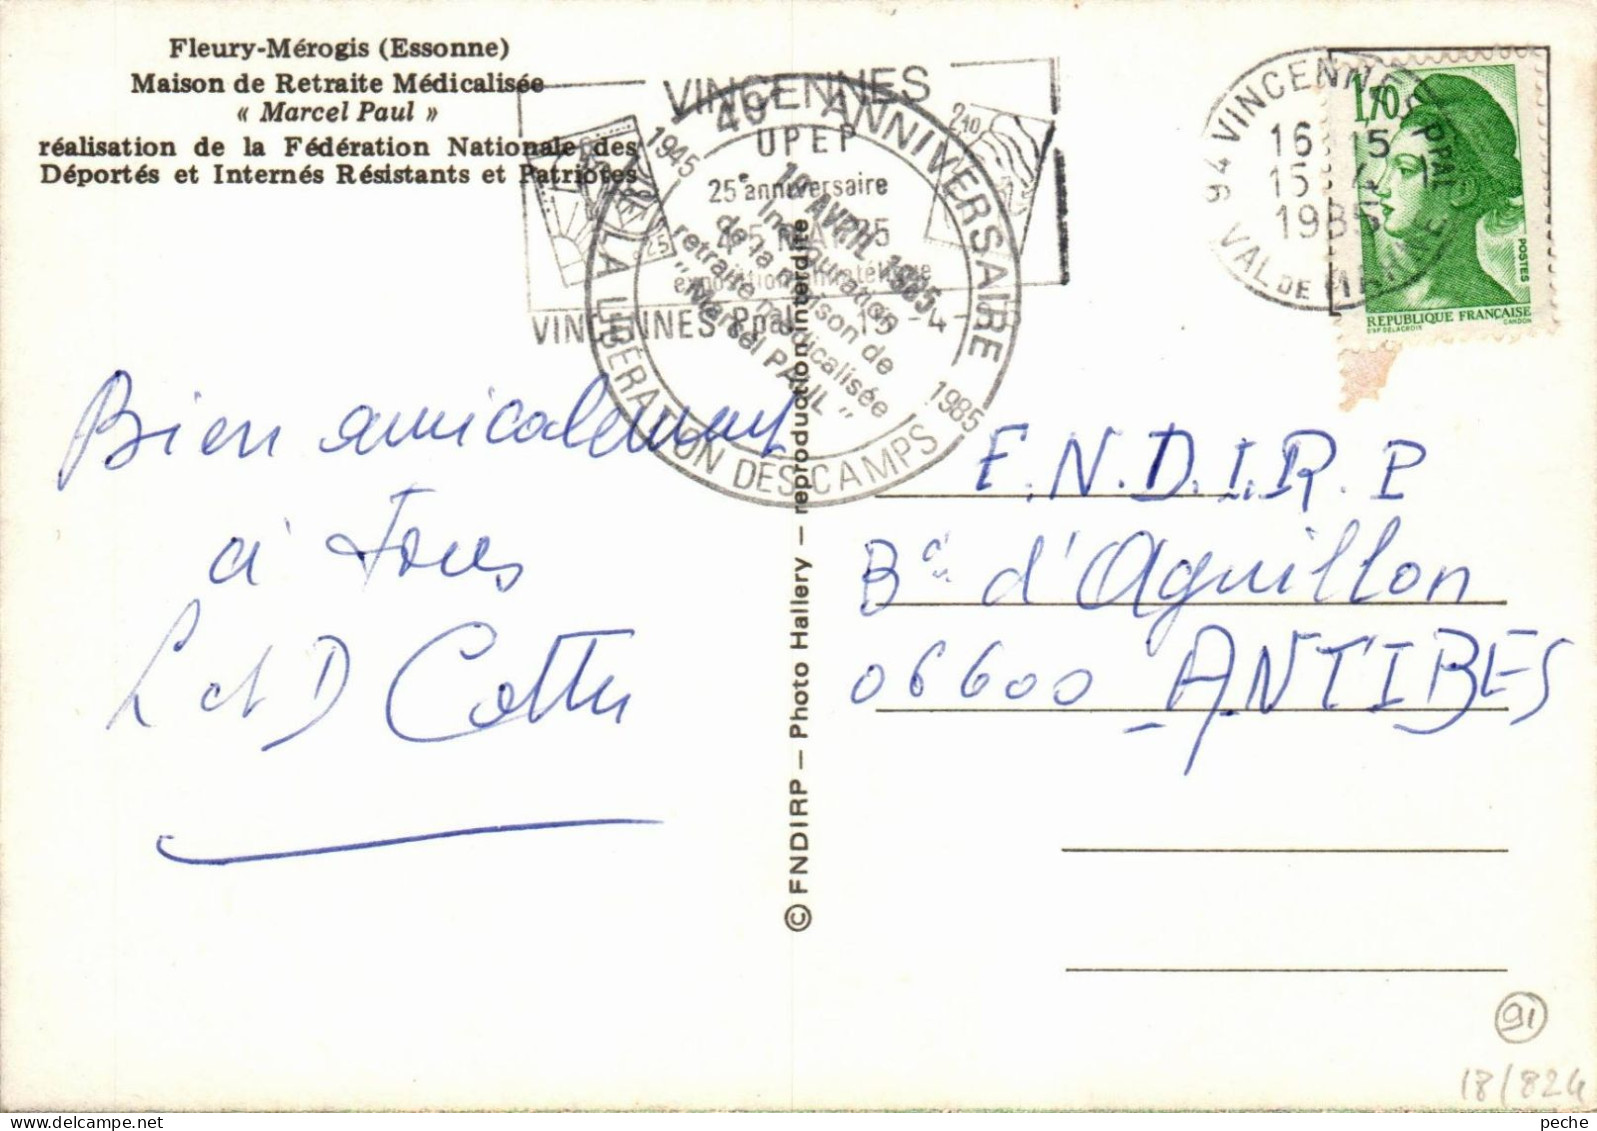 Fleury-Mérogis (Essonne)
Maison de Retraite Médicalisée
« Marcel Paul »
réalisation de la Fédération Nationale des
Déportés et Internés Résistants et Patriotes
VINCENNES
UPEP
25e anniversaire
VINCENNES Ppal 15 - 4 -
2,10
40e ANNIVERSAIRE
1945
LA LIBÉRATION DES CAMPS
1985
10 AVRIL 1985
Inauguration
de la maison de
retraite médicalisée
"Marcel PAUL"
94 VINCENNES PPAL
16 15
15 - 4 -
1985
VAL DE MARNE
1,70
POSTES
REPUBLIQUE FRANCAISE
D'AP. DELACROIX
GANDON
Bien amicalement
à tous
L et D
© FNDIRP — Photo Hallery — reproduction interdite
F.N.D.I.R.P
d'Aguillon
06600 ANTIBES
91
18/824
peche